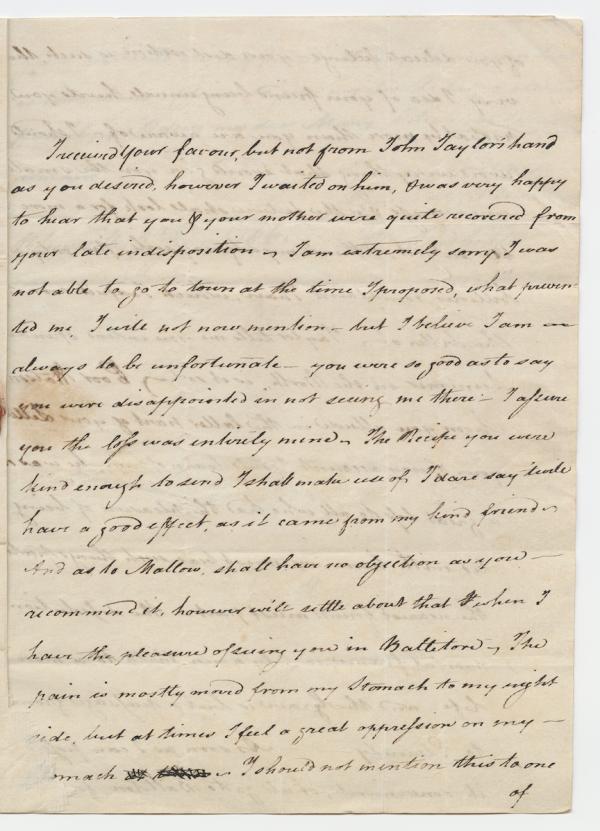 I received your favour, but not from John Taylor's hand
as you desired, however I waited on him, & was very happy
to hear that you & your mother were quite recovered from
your late indisposition — I am extremely sorry I was
not able to go to town at the time I proposed, what preven
ted me I will not now mention — but I believe I am —
always to be unfortunate — you were so good as to say
you were disappointed in not seeing me there — I assure
you the loss was entirely mine — The Recipe you were
kind enough to send I shall make use of, I dare say twile
have a good effect, as it came from my kind friend —
And as to Mallow, shall have no objection as you —
recommend it, however will settle about that when I
have the pleasure of seeing you in Baltitore — The
pain is mostly moved from my Stomach to my right
side, but at times I feel a great oppression on my —
omach — I should not mention this to one
of